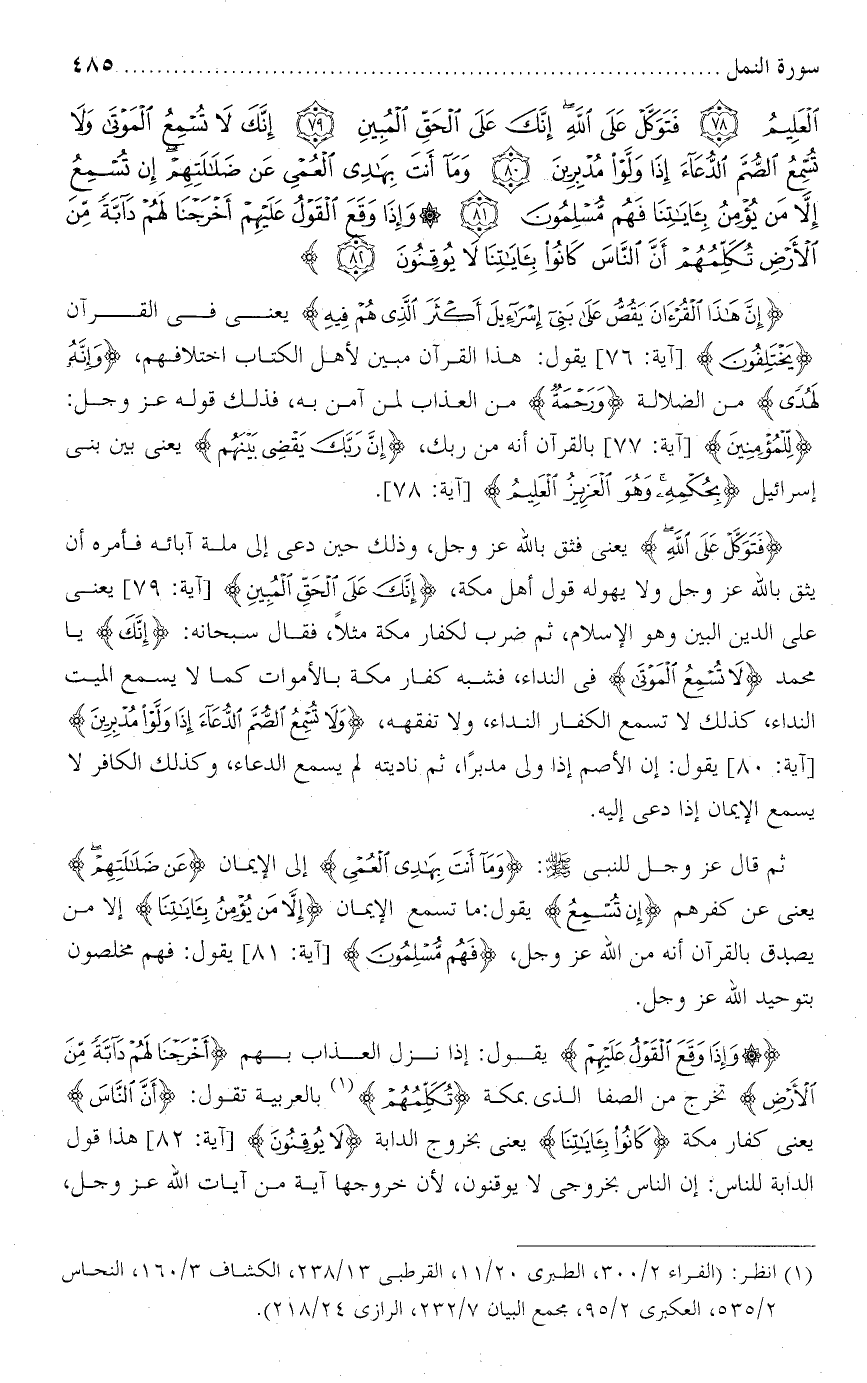 سورة النمل ........................................................................ ٤٨٥
ٱلْعَلِيمُ ﴿٧٨﴾ فَتَوَكَّلْ عَلَى ٱللَّهِ ۖ إِنَّكَ عَلَى ٱلْحَقِّ ٱلْمُبِينِ ﴿٧٩﴾ إِنَّكَ لَا تُسْمِعُ ٱلْمَوْتَىٰ وَلَا
تُسْمِعُ ٱلصُّمَّ ٱلدُّعَآءَ إِذَا وَلَّوْا۟ مُدْبِرِينَ ﴿٨٠﴾ وَمَآ أَنتَ بِهَـٰدِى ٱلْعُمْىِ عَن ضَلَـٰلَتِهِمْ ۖ إِن تُسْمِعُ
إِلَّا مَن يُؤْمِنُ بِـَٔايَـٰتِنَا فَهُم مُّسْلِمُونَ ﴿٨١﴾ ۞ وَإِذَا وَقَعَ ٱلْقَوْلُ عَلَيْهِمْ أَخْرَجْنَا لَهُمْ دَآبَّةً مِّنَ
ٱلْأَرْضِ تُكَلِّمُهُمْ أَنَّ ٱلنَّاسَ كَانُوا۟ بِـَٔايَـٰتِنَا لَا يُوقِنُونَ ﴿٨٢﴾ ﴾
﴿إِنَّ هَـٰذَا ٱلْقُرْءَانَ يَقُصُّ عَلَىٰ بَنِىٓ إِسْرَٰٓءِيلَ أَكْثَرَ ٱلَّذِى هُمْ فِيهِ﴾ يعنـــى فـــى القـــرآن
﴿يَخْتَلِفُونَ﴾ [آية: ٧٦] يقول: هذا القرآن مبين لأهل الكتاب اختلافهم، ﴿وَإِنَّهُۥ
لَهُدًى﴾ من الضلالة ﴿وَرَحْمَةٌ﴾ من العذاب لمن آمن به، فذلك قوله عز وجل:
﴿لِّلْمُؤْمِنِينَ﴾ [آية: ٧٧] بالقرآن أنه من ربك، ﴿إِنَّ رَبَّكَ يَقْضِى بَيْنَهُم﴾ يعنى بين بنى
إسرائيل ﴿بِحُكْمِهِۦ ۚ وَهُوَ ٱلْعَزِيزُ ٱلْعَلِيمُ﴾ [آية: ٧٨].
﴿فَتَوَكَّلْ عَلَى ٱللَّهِ ۖ﴾ يعنى فثق بالله عز وجل، وذلك حين دعى إلى ملة آبائه فأمره أن
يثق بالله عز وجل ولا يهوله قول أهل مكة، ﴿إِنَّكَ عَلَى ٱلْحَقِّ ٱلْمُبِينِ﴾ [آية: ٧٩] يعنـى
على الدين البين وهو الإسلام، ثم ضرب لكفار مكة مثلاً، فقال سبحانه: ﴿إِنَّكَ﴾ يا
محمد ﴿لَا تُسْمِعُ ٱلْمَوْتَىٰ﴾ فى النداء، فشبه كفار مكة بالأموات كما لا يسمع الميت
النداء، كذلك لا تسمع الكفار النداء، ولا تفقهه، ﴿وَلَا تُسْمِعُ ٱلصُّمَّ ٱلدُّعَآءَ إِذَا وَلَّوْا۟ مُدْبِرِينَ﴾
[آية: ٨٠] يقول: إن الأصم إذا ولى مدبرًا، ثم ناديته لم يسمع الدعاء، وكذلك الكافر لا
يسمع الإيمان إذا دعى إليه.
ثم قال عز وجل للنبى ﷺ: ﴿وَمَآ أَنتَ بِهَـٰدِى ٱلْعُمْىِ﴾ إلى الإيمان ﴿عَن ضَلَـٰلَتِهِمْ ۖ﴾
يعنى عن كفرهم ﴿إِن تُسْمِعُ﴾ يقول:ما تسمع الإيمان ﴿إِلَّا مَن يُؤْمِنُ بِـَٔايَـٰتِنَا﴾ إلا من
يصدق بالقرآن أنه من الله عز وجل، ﴿فَهُم مُّسْلِمُونَ﴾ [آية: ٨١] يقول: فهم مخلصون
بتوحيد الله عز وجل.
﴿۞ وَإِذَا وَقَعَ ٱلْقَوْلُ عَلَيْهِمْ﴾ يقـول: إذا نـزل العـذاب بـهم ﴿أَخْرَجْنَا لَهُمْ دَآبَّةً مِّنَ
ٱلْأَرْضِ﴾ تخرج من الصفا الذى بمكة ﴿تُكَلِّمُهُمْ﴾(١) بالعربية تقول: ﴿أَنَّ ٱلنَّاسَ﴾
يعنى كفار مكة ﴿كَانُوا۟ بِـَٔايَـٰتِنَا﴾ يعنى بخروج الدابة ﴿لَا يُوقِنُونَ﴾ [آية: ٨٢] هذا قول
الدابة للناس: إن الناس بخروجى لا يوقنون، لأن خروجها آية من آيات الله عز وجل،
(١) انظر: (الفراء ٣٠٠/٢، الطبرى ١١/٢٠، القرطبى ٢٣٨/١٣، الكشاف ١٦٠/٣، النحاس
٥٣٥/٢، العكبرى ٩٥/٢، مجمع البيان ٢٣٢/٧، الرازى ٢١٨/٢٤).